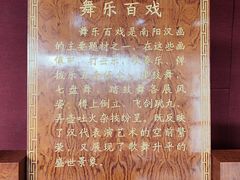 舞乐百戏
舞乐百戏是南阳汉画
的主要题材之一，在这些画
七盘舞、踏鼓舞各展风
姿，樽上倒立、飞剑跳丸、
弄壶吐火杂技纷呈。既反映
了汉代表演艺术的空前繁
荣，又展现了歌舞升平的
盛世景象。